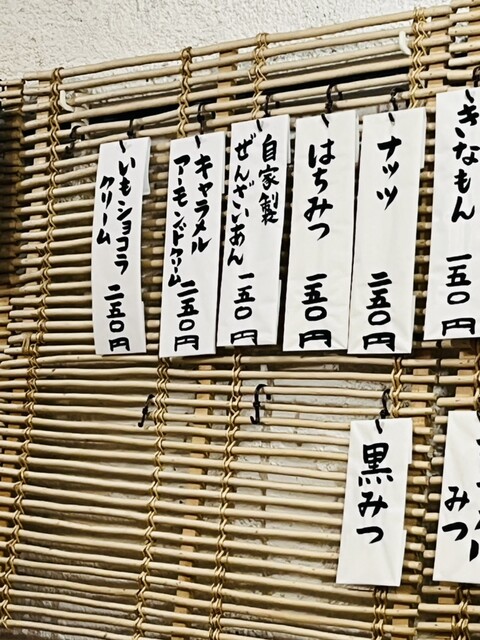 きなもん
一五〇円
ナッツ
二五〇円
はちみつ
一五〇円
自家製
ぜんざいあん
一五〇円
キャラメル
アーモンドクリーム
二五〇円
いもショコラ
クリーム
二五〇円
みつ
黒みつ